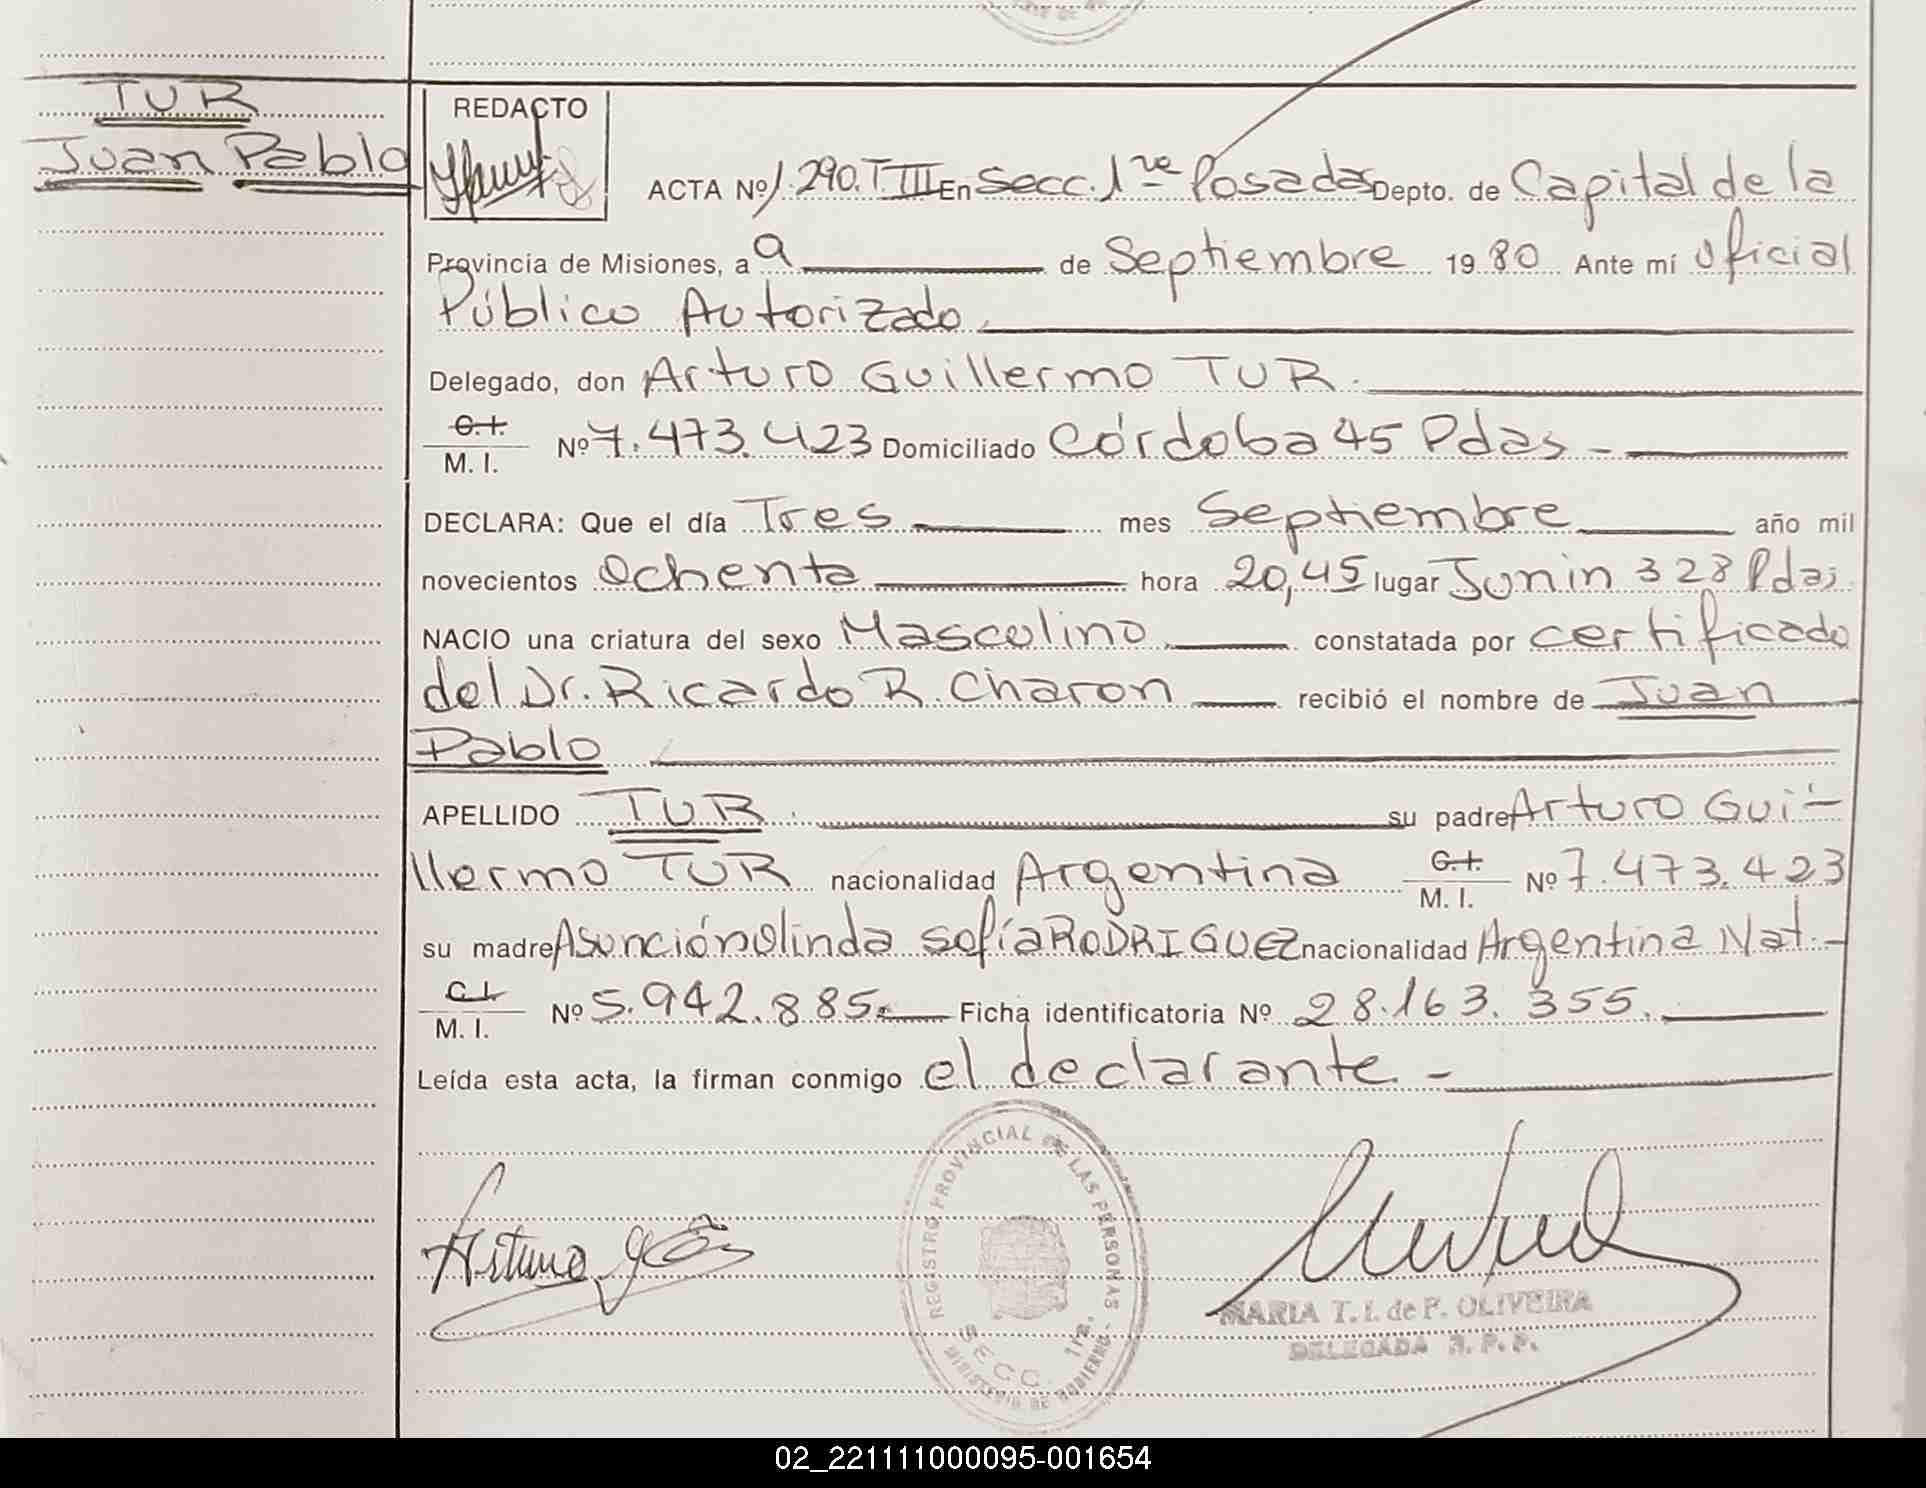 TUR
Juan Pablo
REDACTO
ACTA Nº 1.290.T.III En Secc. 1ra Posadas Depto. de Capital de la
Provincia de Misiones, a 9 de Septiembre 1980 Ante mí Oficial
Público Autorizado.
Delegado, don Arturo Guillermo TUR.
C.I.
M. I. Nº 7.473.423 Domiciliado Córdoba 45 Pdas -
DECLARA: Que el día Tres mes Septiembre año mil
novecientos Ochenta hora 20,45 lugar Junin 328 Pdas.
NACIO una criatura del sexo Masculino, constatada por certificado
del Dr. Ricardo R. Charon recibió el nombre de Juan
Pablo
APELLIDO TUR. su padre Arturo Gui-
llermo TUR nacionalidad Argentina C.I. M. I. Nº 7.473.423
su madre Asunción Olinda Sofía RODRIGUEZ nacionalidad Argentina Nat.-
C.I.
M. I. Nº 5.942.885. Ficha identificatoria Nº 28.163.355.
Leída esta acta, la firman conmigo el declarante. -
REGISTRO PROVINCIAL DE LAS PERSONAS
SECC. 1ra.
MINISTERIO DE GOBIERNO
MARIA T. I. de P. OLIVEIRA
DELEGADA R. P. P.
02_221111000095-001654